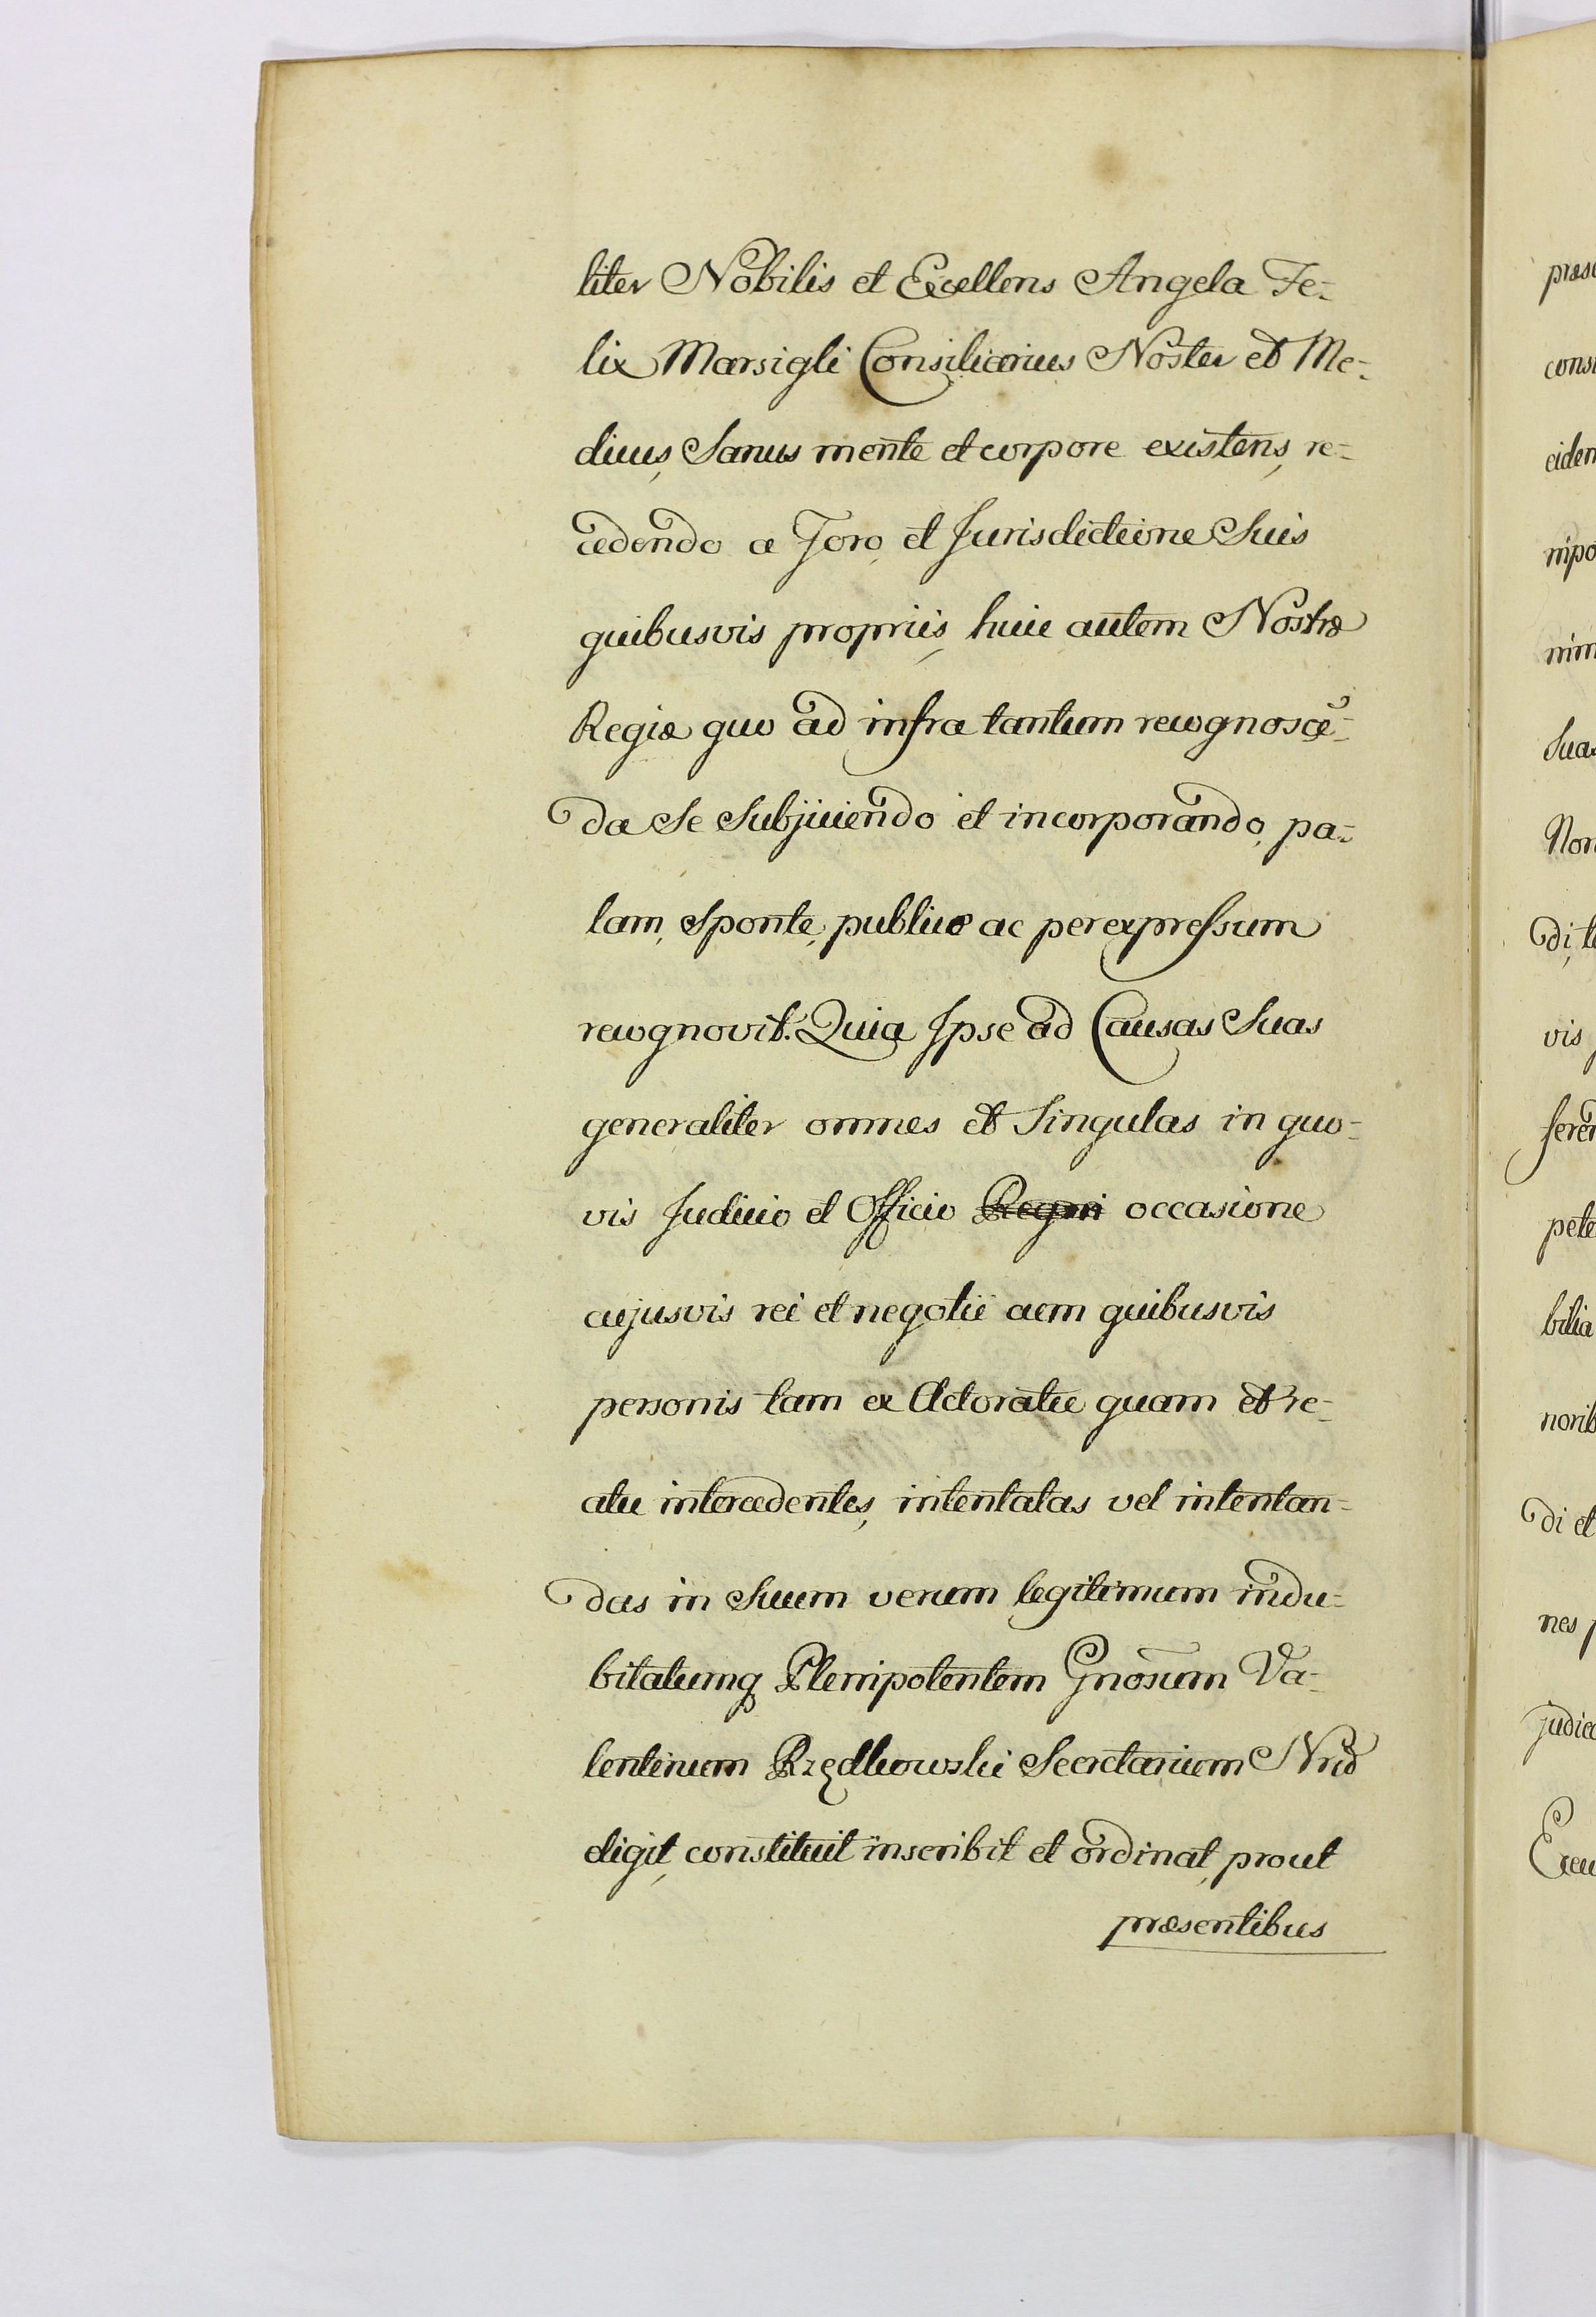 liter Nobilis et Excellens Angela Fe-
lix Marsigli Consiliarius Noster et Me-
dicus, Sanus mente et corpore existens, re-
cedendo a Foro, et Jurisdictione Suis
quibusvis propriis, huic autem Nostræ
Regiæ quo ad infra tantum recognoscẽ-
da Se Subjiciendo et incorporando, pa-
lam, Sponte, publice ac per expressum
recognovit. Quia Ipse ad Causas Suas
generaliter omnes et Singulas in quo-
vis Judicio et Officio Regni occasione
cujusvis rei et negotii cum quibusvis
personis tam ex Actoratu quam et re-
atu intercedentes, intentatas vel intentan-
das in Suum verum legitimum indu-
bitatumq Plenipotentem Gnosum Va-
lentinum Rzędkowski Secretarium Nrũ
eligit, constituit inscribit et ordinat, prout
præsentibus
præs
cons
eiden
nipo
nim
Suas
Non
di, t
vis
feren
pete
bilia
norib
di et
nes p
judic